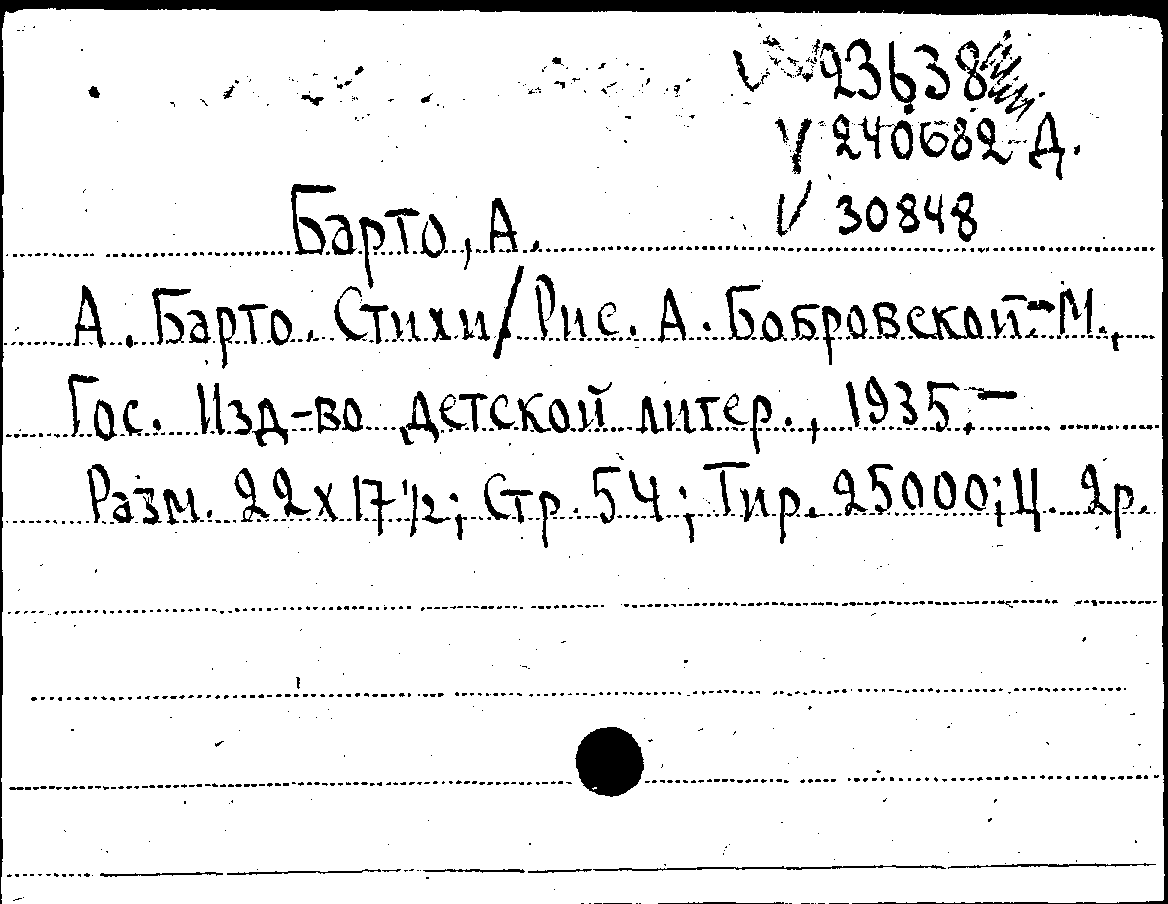 V 23638
V 240682-Д.
V 30848
Барто, А.
А. Барто. Стихи/Рис. А. Бобровской.-М.,
Гос. Изд-во детской литер., 1935.-
Разм. 22х17 1/2; Стр. 54; Тир. 25000; Ц. 2р.